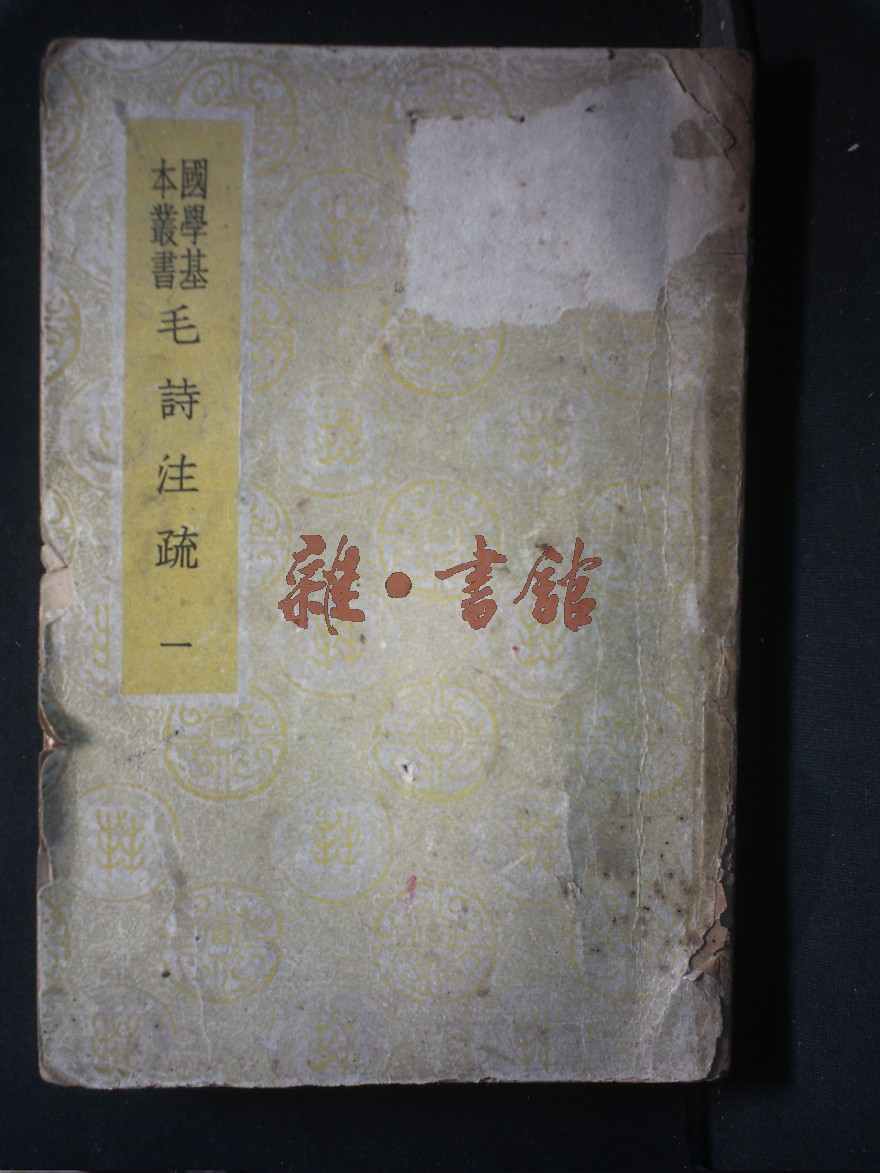 國學基
本叢書
毛詩注疏 一
雜•書館